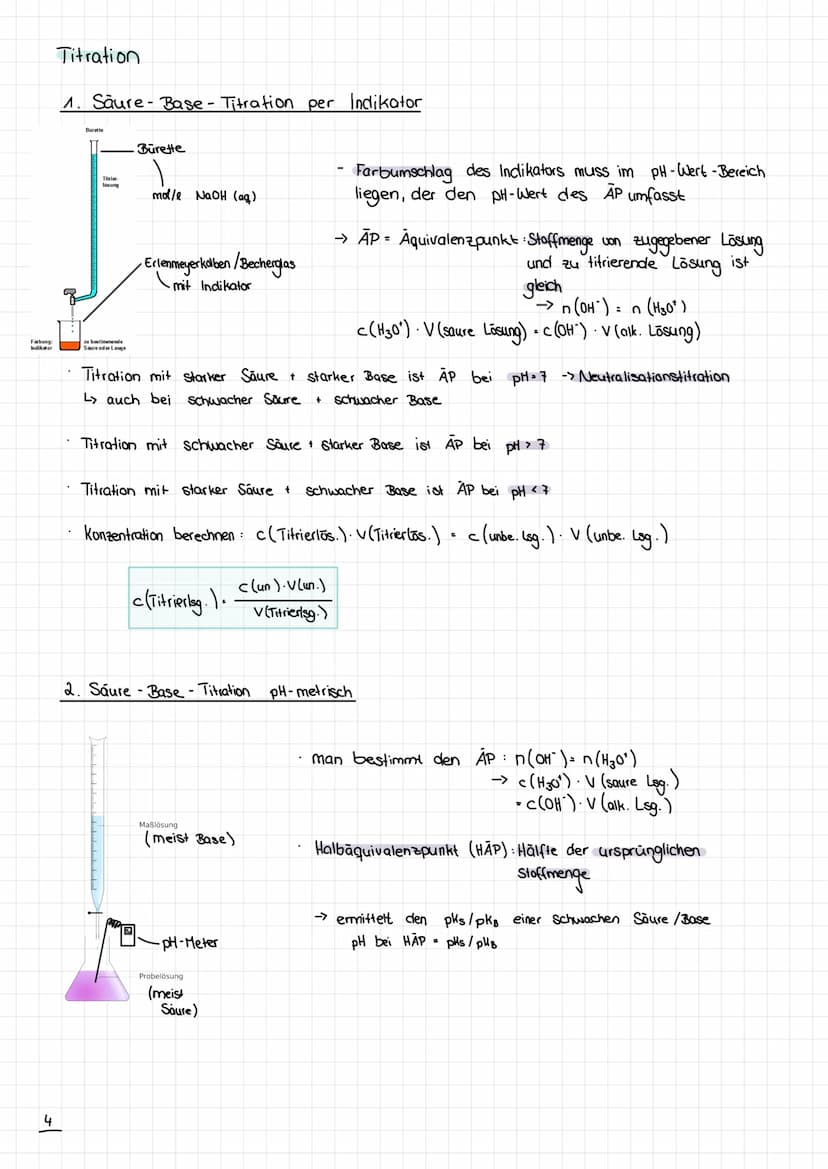 Titration
1. Säure-Base-Titration per Indikator
Bürette
Bürette
Titrier-
lösung
mol/l NaOH (aq)
Erlenmeyerkolben/Becherglas
mit Indikator
Färbung:
Indikator
zu bestimmende
Säure oder Lauge
- Farbumschlag des Indikators muss im pH-Wert-Bereich
liegen, der den pH-Wert des ÄP umfasst
→ ÄP = Äquivalenzpunkt: Stoffmenge von zugegebener Lösung
und zu titrierende Lösung ist
gleich
→ n(OH⁻) = n(H₃O⁺)
c(H₃O⁺) · V(saure Lösung) = c(OH⁻) · V(alk. Lösung)
· Titration mit starker Säure + starker Base ist ÄP bei pH=7 -> Neutralisationstitration
↳ auch bei schwacher Säure + schwacher Base
· Titration mit schwacher Säure + starker Base ist ÄP bei pH > 7
· Titration mit starker Säure + schwacher Base ist ÄP bei pH < 7
· Konzentration berechnen: c(Titrierlös.) · V(Titrierlös.) = c(unbe. lsg.) · V(unbe. Lsg.)
c(Titrierlsg.) = c(un) · V(un.)
V(Titrierlsg.)
2. Säure-Base-Titration pH-metrisch
Maßlösung
(meist Base)
pH-Meter
Probelösung
(meist
Säure)
· man bestimmt den ÄP: n(OH⁻) = n(H₃O⁺)
→ c(H₃O⁺) · V(saure Lsg.)
= c(OH⁻) · V(alk. Lsg.)
· Halbäquivalenzpunkt (HÄP): Hälfte der ursprünglichen
Stoffmenge
→ ermittelt den pKs/pKB einer schwachen Säure/Base
pH bei HÄP = pKs/pKB
4